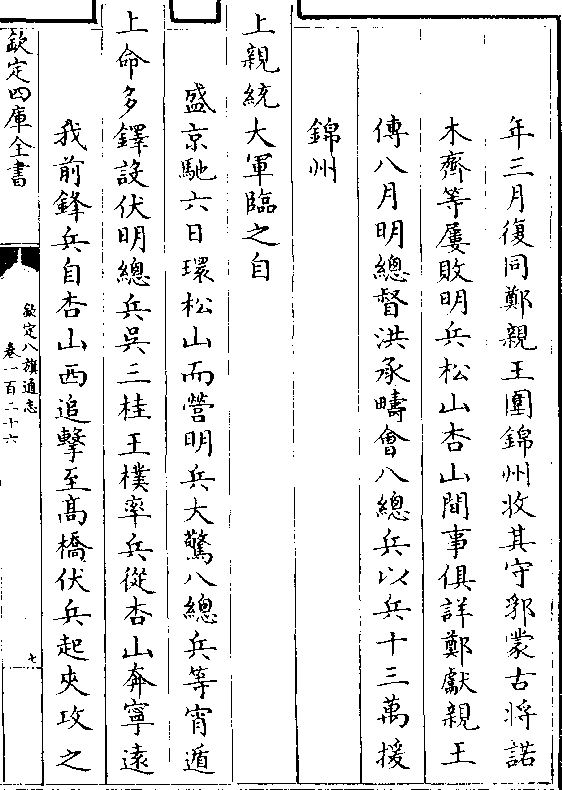 年三月復同鄭親王圍錦州收其守郛蒙古將諾
木齊等屢敗明兵松山杏山間事俱詳鄭獻親王
傳八月明總督洪承疇會八總兵以兵十三萬援
錦州
上親統大軍臨之自
盛京馳六日環松山而營明兵大驚八總兵等宵遁
上命多鐸設伏明總兵吳三桂王樸率兵從杏山奔寧遠
我前鋒兵自杏山西追擊至高橋伏兵起夾攻之
欽定四庫全書
欽定八旗通志
卷一百二十六
七